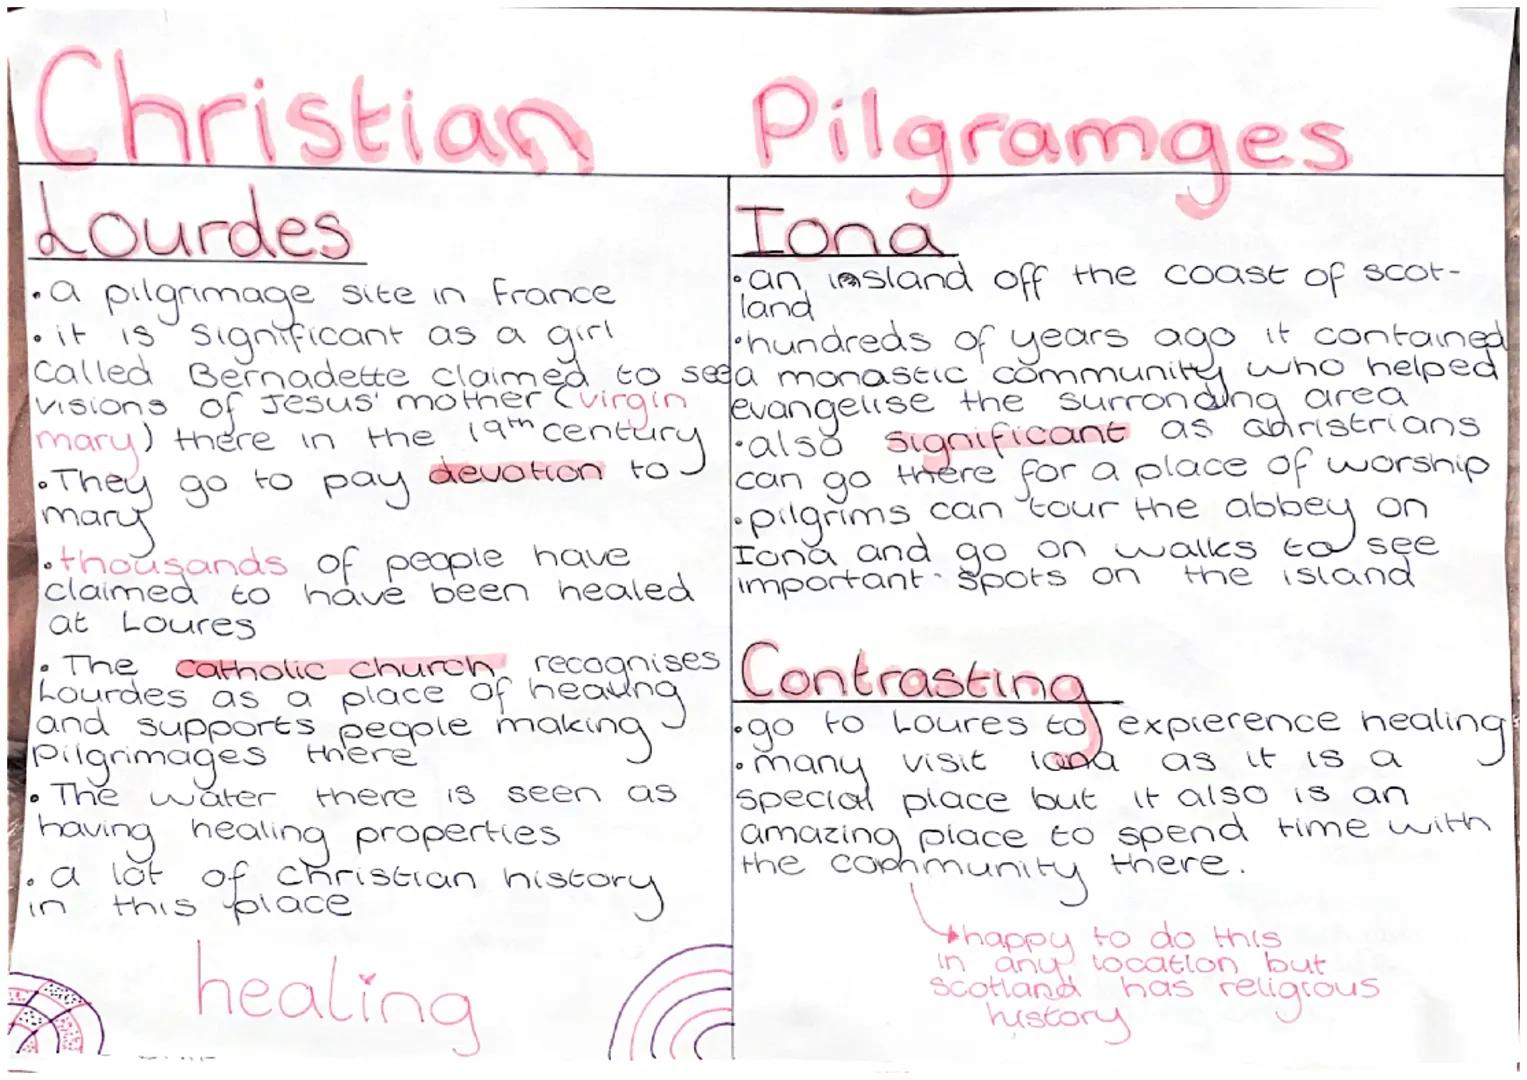 Christian Pilgramges
Lourdes
• a pilgrimage site in france
• it is significant as a girl
called Bernadette claimed to see
visions of Jesus' mother (virgin
mary) there in the 19th century
• They go to pay devotion to
mary
• thousands of people have
claimed to have been healed
at Loures
• The catholic church recognises
Lourdes as a place of healing
and supports people making
pilgrimages there
• The water there is seen as
having healing properties
• a lot of christian history
in this place
healing
Iona
• an island off the coast of scot-
land
• hundreds of years ago it contained
a monastic community who helped
evangelise the surronding area
• also significant as christrians
can go there for a place of worship
• pilgrims can tour the abbey on
Iona and go on walks to see
important spots on the island
Contrasting
• go to Loures to expierence healing
• many visit iona as it is a
special place but it also is an
amazing place to spend time with
the community there.
happy to do this
in any location but
scotland has religious
history